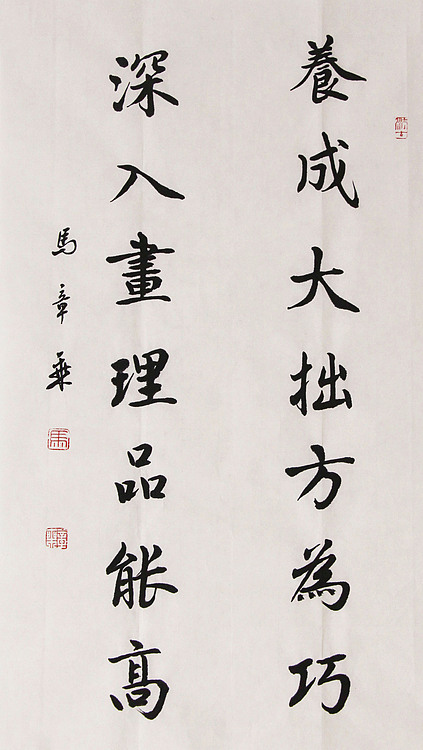 養成大拙方為巧
深入畫理品能高
馬章乘